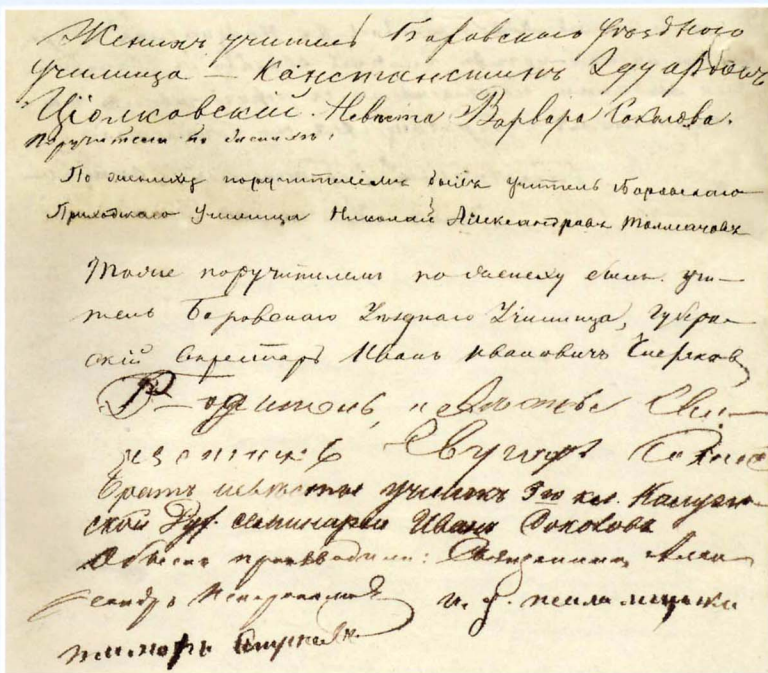 Женихъ учитель Боровскаго Уѣзднаго
училища — Константинъ Эдуардовъ
Ціолковскій. Невѣста Варвара Соколова.
Поручители по
По женихѣ поручителемъ былъ учитель Боровскаго
Приходскаго Училища Николай Александровъ Толмачовъ
Тоже поручителемъ по жениху былъ учи—
тель Боровскаго Уѣзднаго Училища, Губерн—
скій Секретарь Иванъ Ивановичъ
Родитель невѣсты Свя—
щенникъ Евграфъ
Братъ невѣсты ученикъ 3го кл. Калуж—
ской Дух. семинаріи Иванъ Соколовъ
Обыскъ производили: Священникъ Алек
сандръ и. д. псаломщика